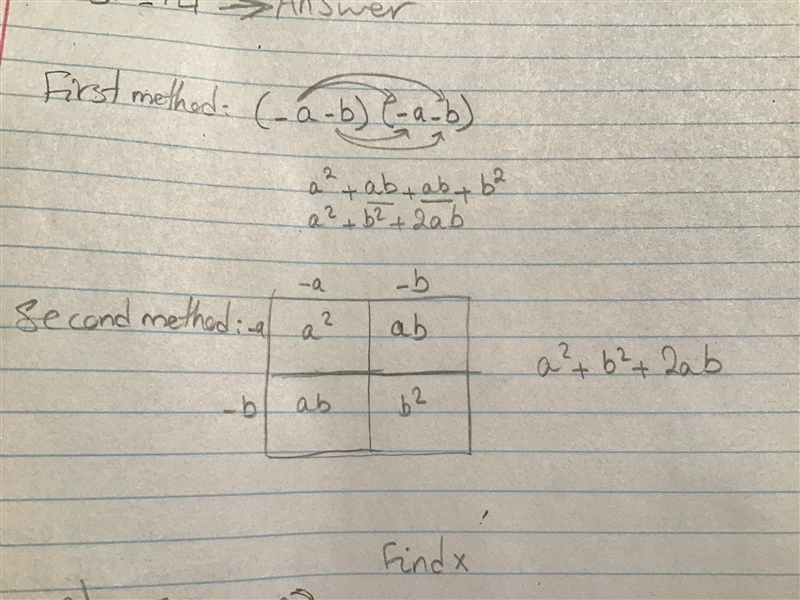 Answer
First method: (-a-b) (-a-b)
a² + ab + ab + b²
a² + b² + 2ab
-a -b
Second method: -a a² ab
a² + b² + 2ab
-b ab b²
Find x